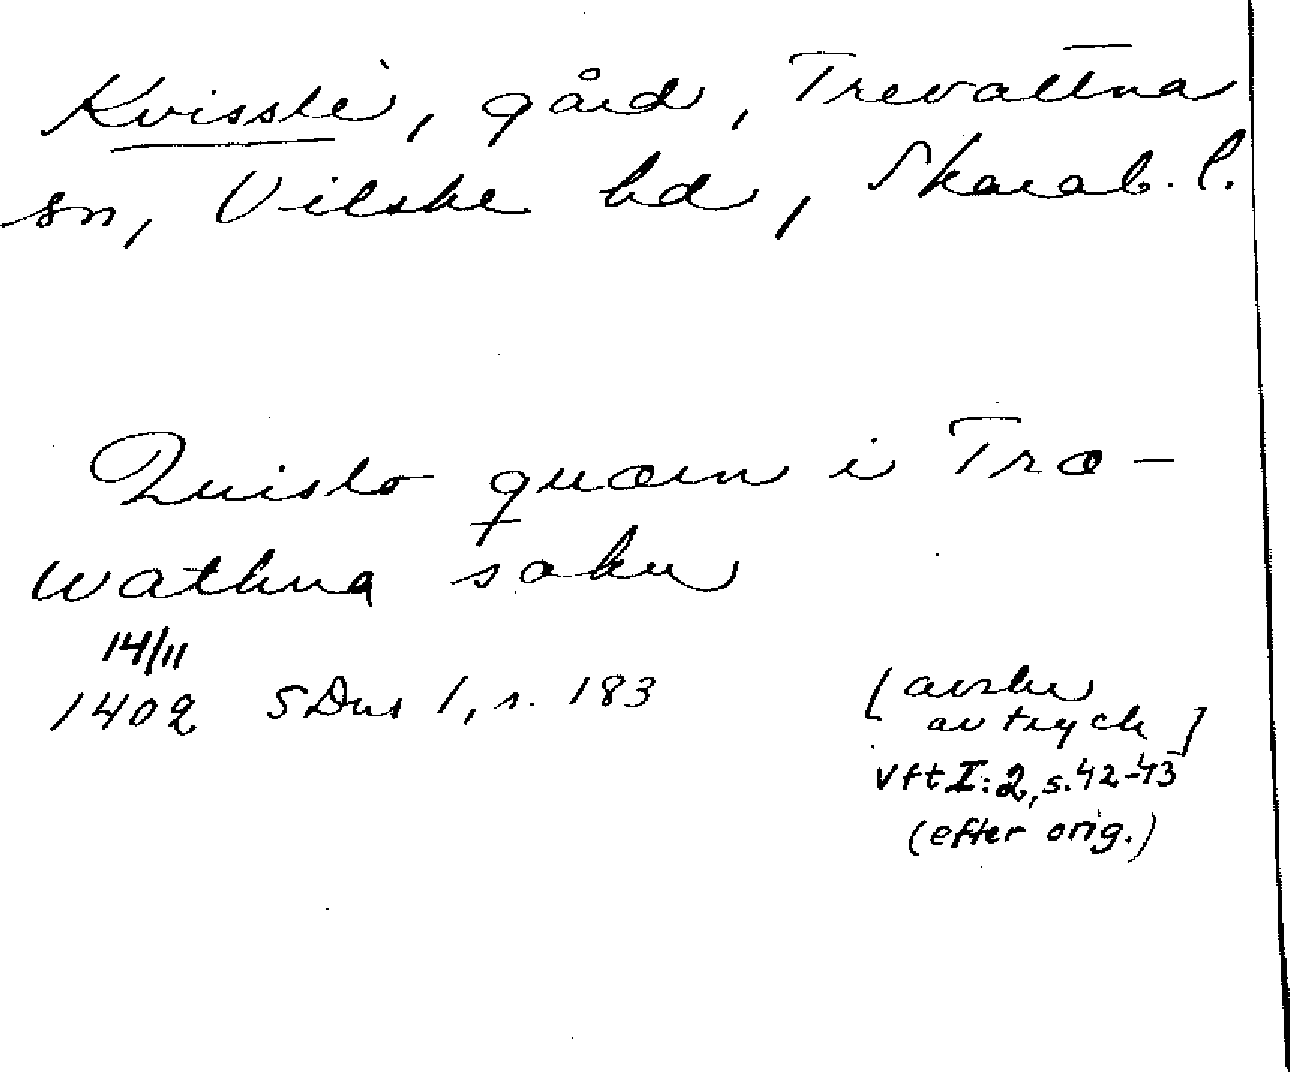 Kvissle, gård, Trevattna
sn, Vilske hd, Skarab. l.
Quislo quærn i Træ-
wathna sokn
14/11
1402 SDns 1, s. 183
[avskr
av tryck]
Vft I:2, s. 42-43
(efter orig.)